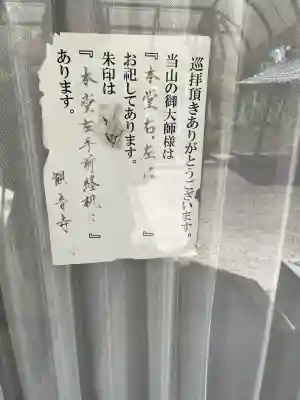 巡拝頂きありがとうございます。
当山の御大師様は
『本堂右・左に
お祀してあります。
朱印は
『本堂左手前経机に』
あります。
観音寺